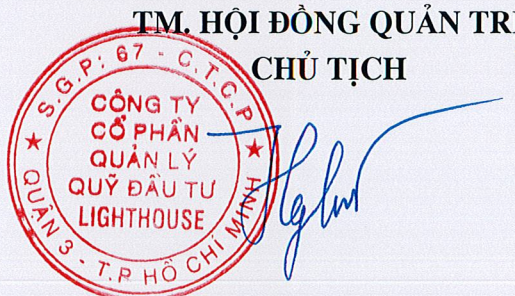 TM. HỘI ĐỒNG QUẢN TRỊ
CHỦ TỊCH
S.G.P: 67 - C.T.C.P
CÔNG TY
CỔ PHẦN
QUẢN LÝ
QUỸ ĐẦU TƯ
LIGHTHOUSE
QUẬN 3 - T.P HỒ CHÍ MINH